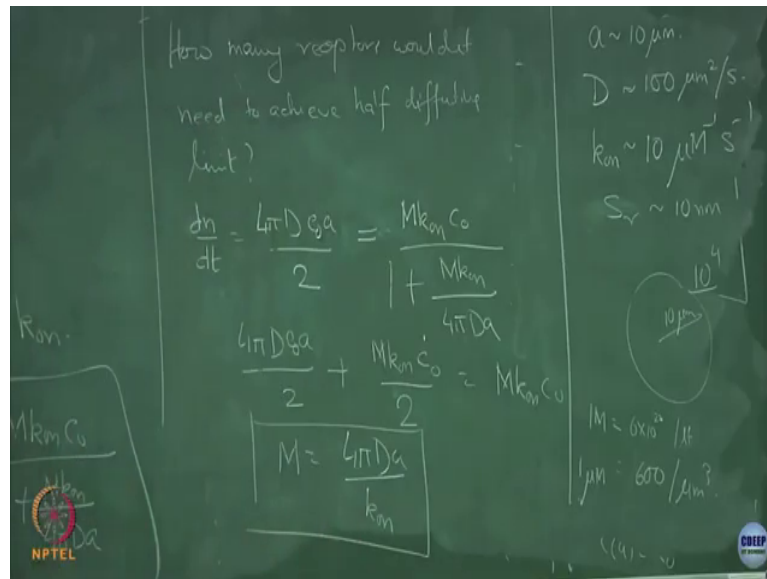 How many receptors would it
need to achieve half diffusive
limit?
dn/dt = 4πDc₀a/2 = Mkₒₙc₀/(1 + Mkₒₙ/4πDa)
4πDc₀a/2 + Mkₒₙc₀/2 = Mkₒₙc₀
M = 4πDa/kₒₙ
kₒₙ.
Mkₒₙc₀
+ Mkₒₙ/4πDa
a ~ 10 μm.
D ~ 100 μm²/s.
kₒₙ ~ 10 μM⁻¹ s⁻¹
Sᵣ ~ 10 nm
10⁴
10 μm
1M = 6x10²³ /lit
1μM = 600 /μm³.
NPTEL
CDEEP
IIT BOMBAY